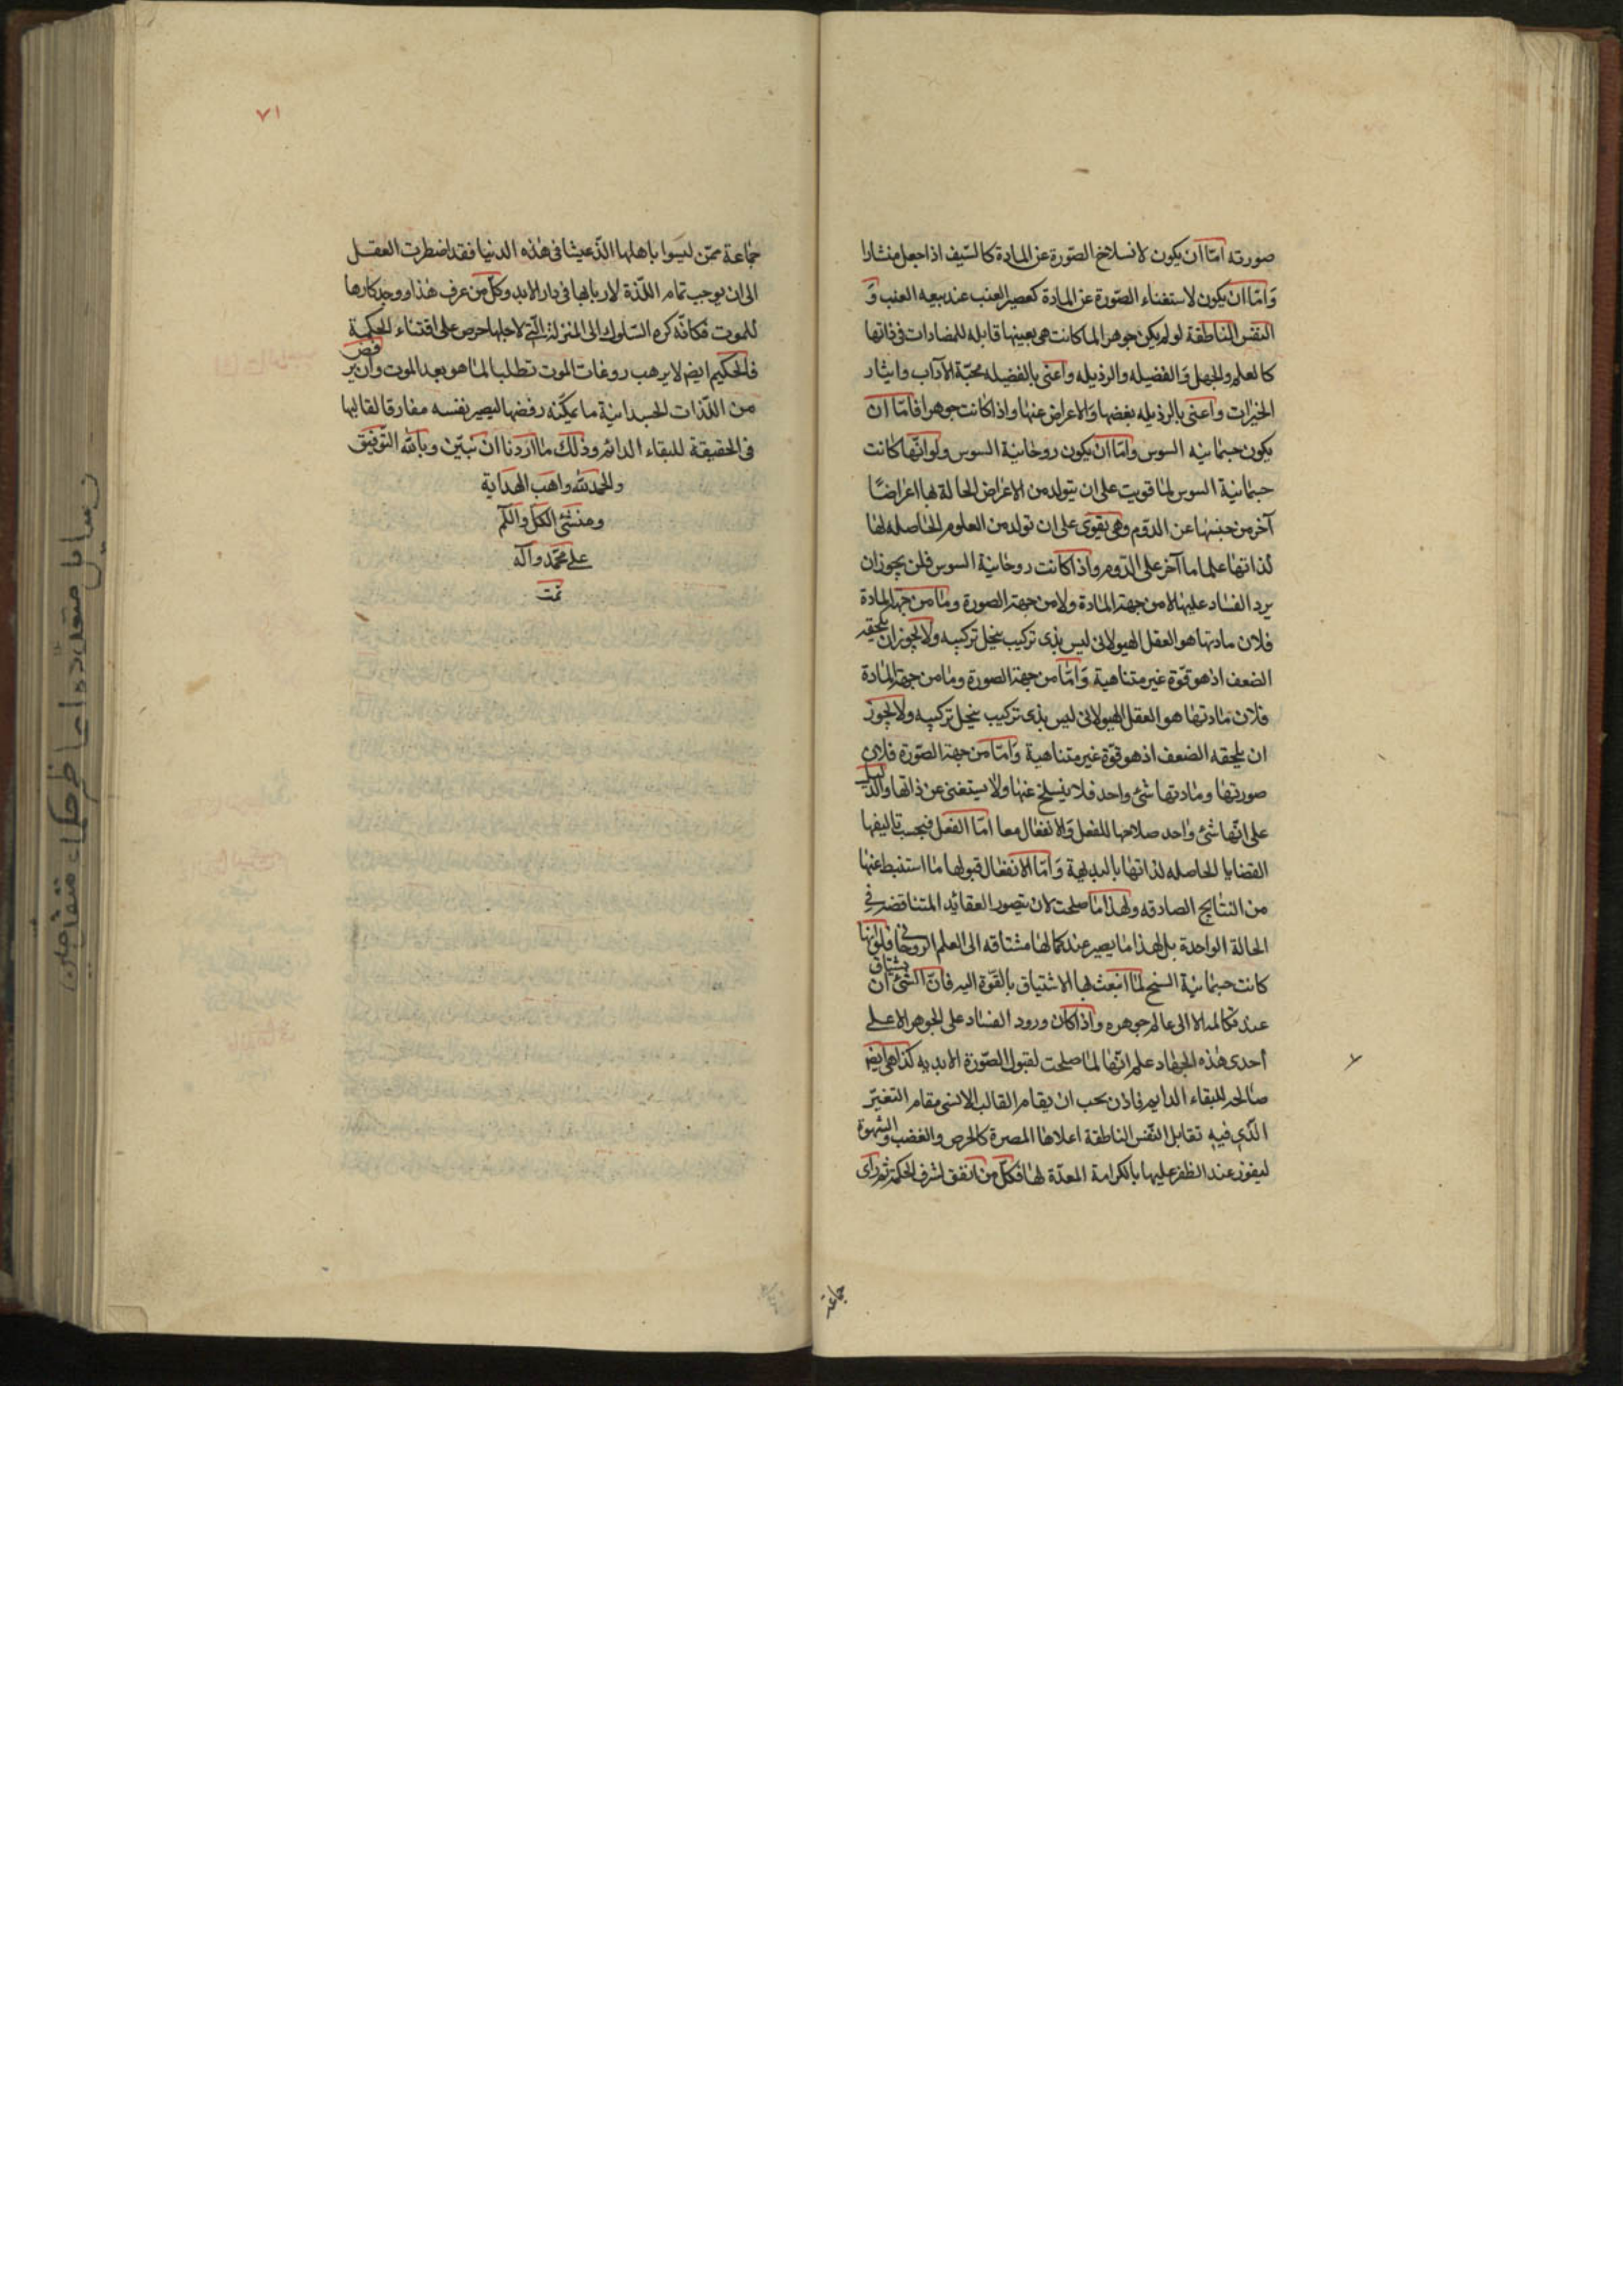 صورته امّا ان يكون لانسلاخ الصّورة عن المادة كالسّيف اذا جعل منشارا
وَامّا ان يكون لاستغناء الصّورة عن المادة كعصير العنب عند بيعه العنب وَ
النفس الناطقة لو لم يكن جوهرا لما كانت هى بعينها قابله للمضادات فى ذاتها
كالعلم والجهل وَالفضيله والرذيله واعنى بالفضيله محبّة الآداب وايثار
الخيرات واعنى بالرذيله بغضها وَالاعراض عنها واذا كانت جوهرا فامّا ان
يكون جسمانيه السوس وامّا ان يكون روحانية السوس ولو انّها كانت
جسمانية السوس لما قويت على ان يتولد من الاعراض الحالة بها اعراضًا
آخر من جنسها عن الدّوم وهى يقوى على ان تولد من العلوم الحاصله لها
لذاتها علما ما آخر على الدّوم واذا كانت روحانية السوس فلن يجوز ان
يرد الفساد عليها لا من جهة المادة ولا من جهة الصورة وما من جهة المادة
فلان مادتها هو العقل الهيولانى ليس بذى تركيب ينحل تركيبه ولا يجوز ان يلحقه
الضعف اذ هو قوّة غير متناهية وَامّا من جهة الصورة وما من جهة المادة
فلان مادتها هو العقل الهيولانى ليس بذى تركيب ينحل تركيبه ولا يجوز
ان يلحقه الضعف اذ هو قوّة غير متناهية وَامّا من جهة الصّورة فلان
صورتها ومادتها شئ واحد فلا ينسلخ عنها ولا يستغنى عن ذاتها والدليل
على انّها شئ واحد صلاحها للفعل وَالانفعال معا امّا الفعل فبحسب تاليفها
القضايا الحاصله لذاتها بالبديهة وَامّا الانفعال قبولها ما استنبط عنها
من النتايج الصادقه ولهذا ما صلحت لان يتصور العقائد المتناقضة فى
الحالة الواحدة بل لهذا ما يصير عند كمالها مشتاقه الى العلم الروحانى فلو انها
كانت جسمانية السنخ لما انبعث لها الاشتياق بالقوّة اليه فانّ الشئ ان يشتاق
عند كماله الا الى عالم جوهره واذا كان ورود الفساد على الجوهر الاعلى
احدى هذه الجهاد علم انّها لما صلحت لقبول الصّورة الابديه كذا هى ايضا
صالحه للبقاء الدايم فاذن يجب ان يقام القالب الانسى مقام التغيّر
الذى فيه تقابل النّفس الناطقة اعلاها المصرة كالحرص والغضب والشهوة
ليفوز عند الظفر عليها بالكرامة المعدّة لها فكلّ من اتفق لشرف الحكمة ثم راى
جماعة
٧١
جماعة ممّن ليسوا باهلها الذّ عيشا فى هذه الدنيا فقد اضطرت العقل
الى ان يوجب تمام اللّذة لاربابها فى دار الابد وكلّ من عرف هذا ووجد كارها
للموت فكانّه كره السّلوك الى المنزلة الّتى لاجلها حرص على اقتناء الحكمة
فالحكيم ايض لا يرهب روغات الموت تطلبا لما هو بعد الموت وان يرفض
من اللّذات الجسدانية ما يمكنه رفضها ليصير نفسه مفارقا لقالبها
فى الحقيقة للبقاء الدائم وذلك ما اردنا ان نبيّن وبالله التّوفيق
والحمد لله واهب الهداية
ومنشئ الكل و
على محمّد وآله
تمت
رسايل متعدده از حكماء متقدمين